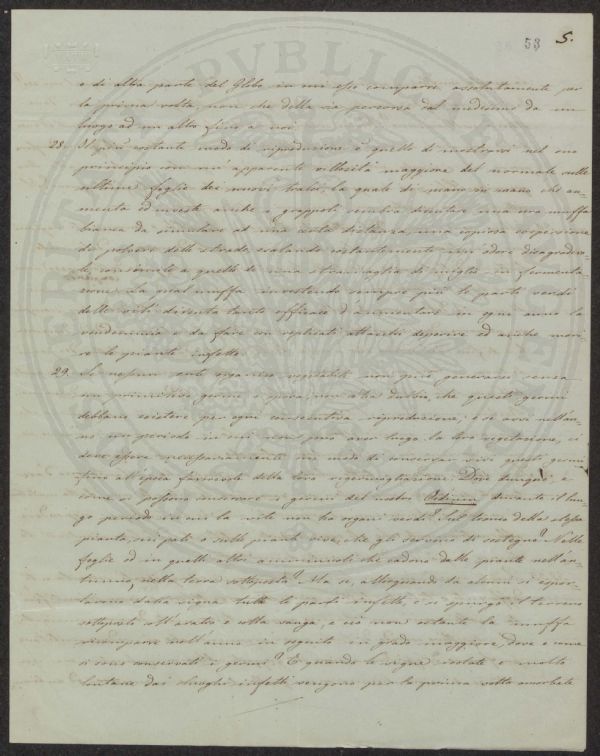 53 5.
o di altra parte del Globo in cui esso comparve assolutamente per
la prima volta, non che della via percorsa dal medesimo da un
luogo ad un altro fino a noi.
28. Il più costante modo di riproduzione è quello di mostrarsi nel suo
principio con un' apparente villosità maggiore del normale sulle
ultime foglie dei nuovi tralci la quale di mano in mano che au-
menta ed investe anche i grappoli sembra diventare una vera muffa
bianca da simulare ad una certa distanza, una copiosa aspersione
di polvere delle strade esalando costantemente un odore disagradevo-
le, consimile a quello di una di miglio in fermenta
zione. La qual muffa investendo sempre più le parti verdi
delle viti diventa tanto efficace d'annientare in ogni anno la
vendemmia e da fare con replicati attacchi deperire ed anche mori
re le piante infette.
29. Se nessun ente organico vegetabile non può generarsi senza
un primitivo germe o spora, non v'ha dubbio, che questi germi
debbano esistere per ogni consecutiva riproduzione, e se avvi nell'an-
no un periodo in cui non può aver luogo la loro vegetazione, ci
deve essere necessariamente un modo di conservar vivi questi germi
fino all'epoca favorevole della loro rigermogliazione. Dove dunque, e
come si possono conservare i germi del nostro Oidium durante il lun-
go periodo in cui la vite non ha organi verdi? Sul tronco della stessa
pianta, sui pali o sulle piante vive, che gli servono di sostegno? Nelle
foglie ed in quelli altri amminicoli che cadono dalle piante nell'au-
tunno, nella terra sottoposta? Ma se, allorquando da alcuni si espor-
tarono dalla vigna tutte le parti infette, e si spurgò il terreno
sottoposto coll'aratro e colla vanga, e ciò non ostante la muffa
ricomparve nell'anno in seguito in grado maggiore, dove e come
si sono conservati i germi? E quando le vigne isolate e molto
lontane dai luoghi infetti vengono per la prima volta amorbate